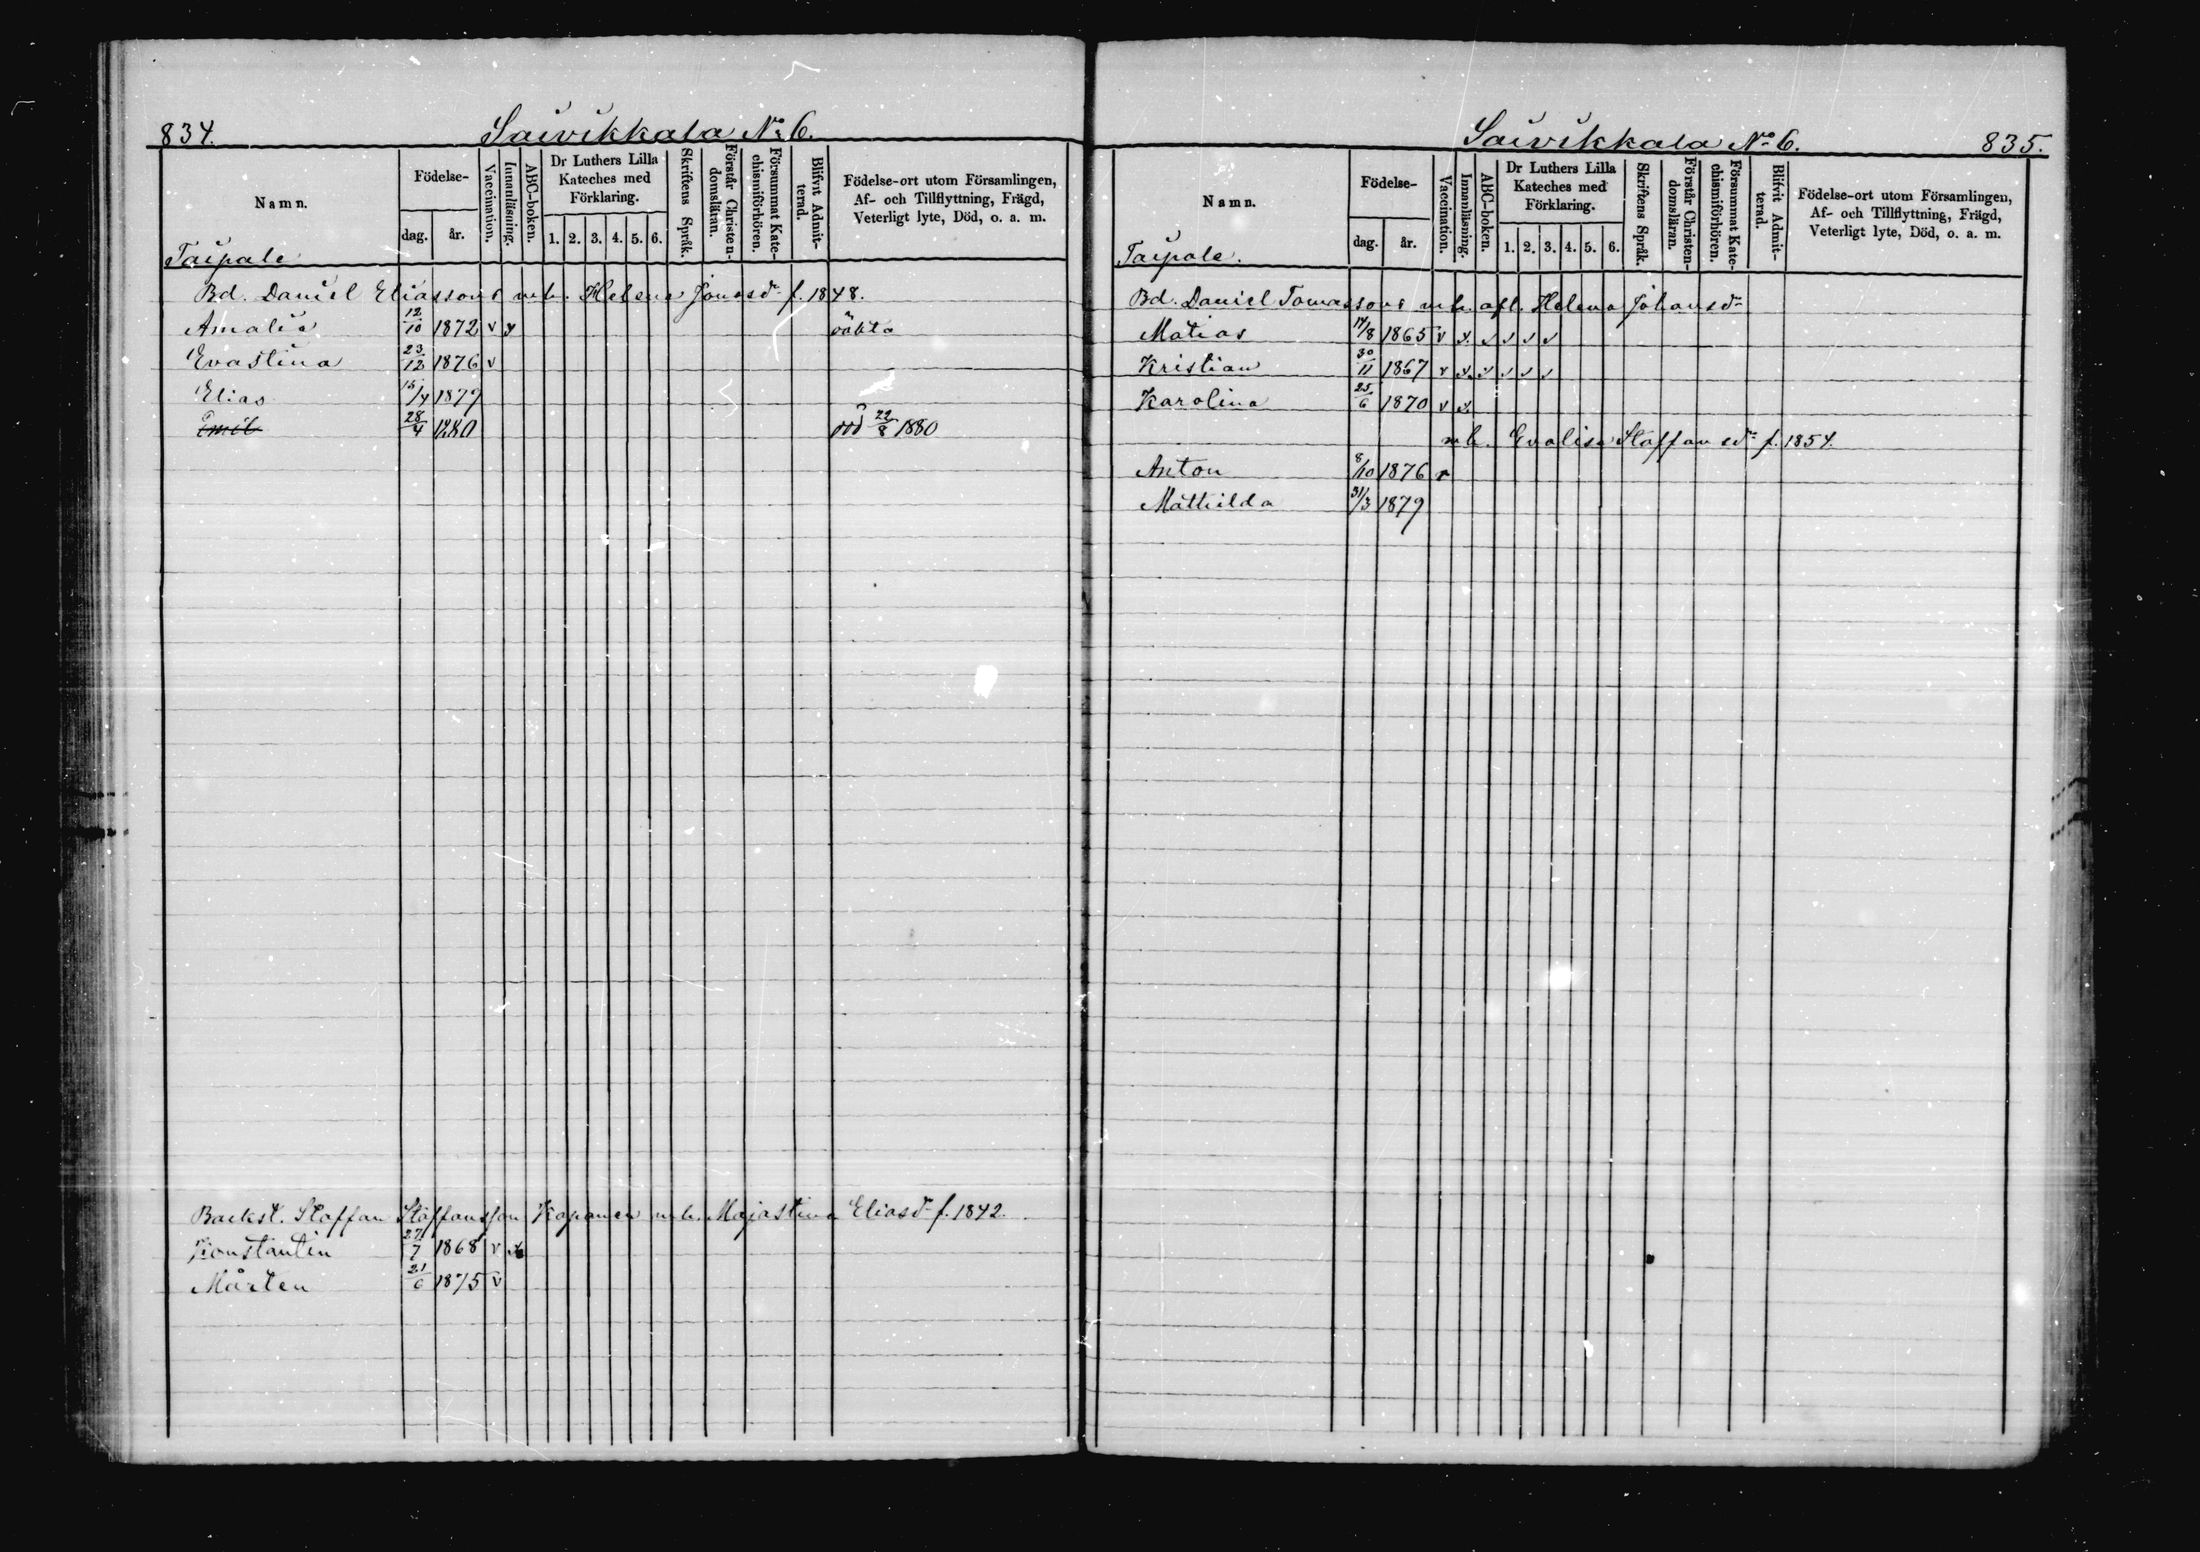 834. Saivikkala No 6.
Namn. Födelse- dag. år. Vaccination. Innanläsning. ABC-boken. Dr Luthers Lilla Kateches med Förklaring. 1. 2. 3. 4. 5. 6. Skriftens Språk. Förstår Christendomsläran. Försummat Katechismiförhören. Blifvit Admitterad. Födelse-ort utom Församlingen, Af- och Tillflyttning, Frägd, Veterligt lyte, Död, o. a. m.
Taipale
Bd. Daniel Eliassons m b. Helena Jonasdr f. 1848.
Amalia 12/10 1872 v v oäkta
Evastina 23/12 1876 v
Elias /4 1879
Emil 28/4 1880 död 22/8 1880
Backst. Staffan Staffansson Kapanen m b. Majastina Eliasdr f. 1842.
Konstantin 27/7 1868 v
Mårten 21/6 1875 v
Saivikkala No 6. 835.
Namn. Födelse- dag. år. Vaccination. Innanläsning. ABC-boken. Dr Luthers Lilla Kateches med Förklaring. 1. 2. 3. 4. 5. 6. Skriftens Språk. Förstår Christendomsläran. Försummat Katechismiförhören. Blifvit Admitterad. Födelse-ort utom Församlingen, Af- och Tillflyttning, Frägd, Veterligt lyte, Död, o. a. m.
Taipale.
Bd. Daniel Tomassons m b. afl. Helena Johansdr
Matias 17/8 1865 v v v v v v
Kristian 30/11 1867 v v v v v v
Karolina 25/6 1870 v v
m b. Evalisa Staffansdr f. 1854.
Anton 8/10 1876 v
Mathilda 31/3 1879